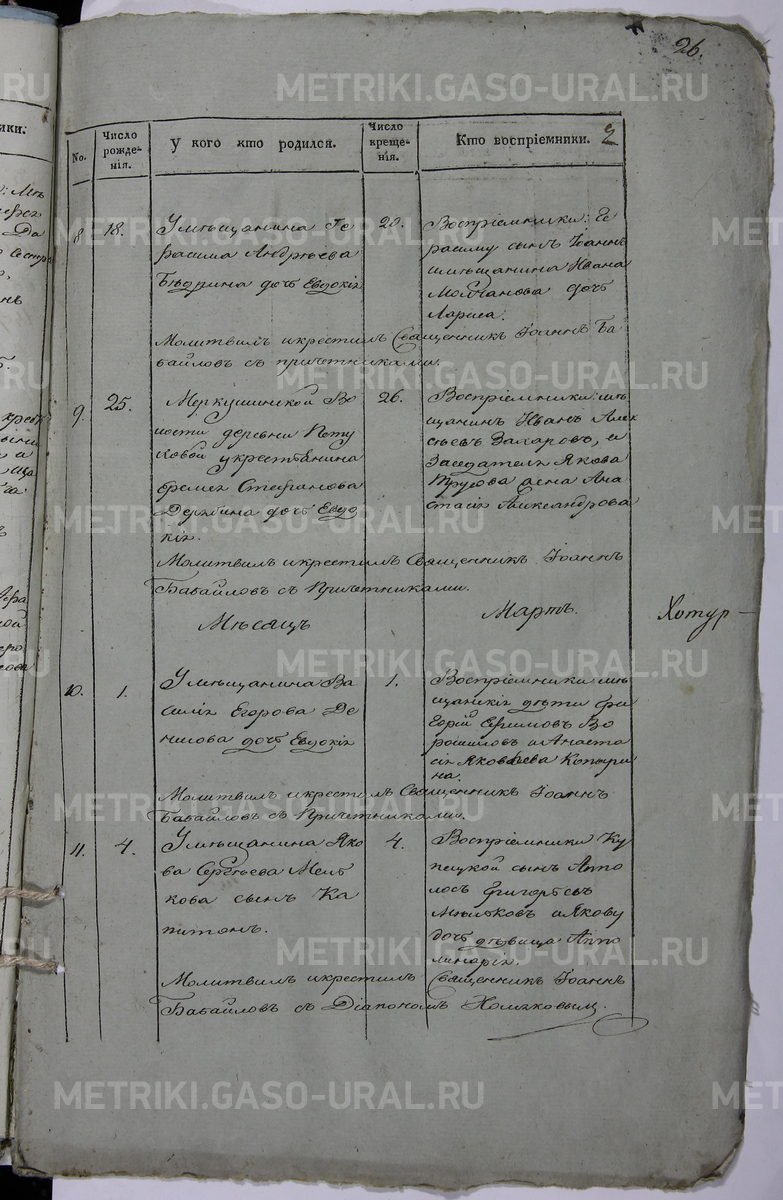 26.
No.
Число рожде-
нія.
У кого кто родился.
Число креще-
нія.
Кто воспріемники.
2
8 18.
У мѣщанина Ге
расима Андреева
Бедрина дочь Евдокія
20.
Воспріемники: Ге
расиму сынъ Іоаннъ
и мѣщанина Ивана
Молчанова дочь
Лариса.
Молитвилъ и крестилъ Священникъ Іоаннъ Ба
байловъ съ причетниками.
9. 25.
Меркушинской Во
лости деревни Пету
ховой у крестьянина
Стефанова
дочь Евдо
кія.
26.
Воспріемники: мѣ
щанинъ Иванъ Алек
сѣевъ Захаровъ, и
Заседателя Якова
Трусова жена Ана
стасія Александрова
Молитвилъ и крестилъ Священникъ Іоаннъ
Бабайловъ съ Причетниками.
Мѣсяцъ Мартъ.
Хотур
10. 1.
У мѣщанина Ва
силія Егорова Де
нисова дочь Евдокія
1.
Воспріемники мѣ
щанскія дѣти
Ефимовъ Во
рошиловъ и Анаста
сія Яковлева
Молитвилъ и крестилъ Священникъ Іоаннъ
Бабайловъ съ Причетниками.
11. 4.
У мѣщанина Яко
ва Сергѣева Мел
кова сынъ Ка
питонъ.
4.
Воспріемники Ку
пецкой сынъ Аппо
лосъ Григорьевъ
и Якову
дочь дѣвица Аппо
линарія.
Молитвилъ и крестилъ Священникъ Іоаннъ
Бабайловъ съ Діакономъ Хомяковымъ.
METRIKI.GASO-URAL.RU